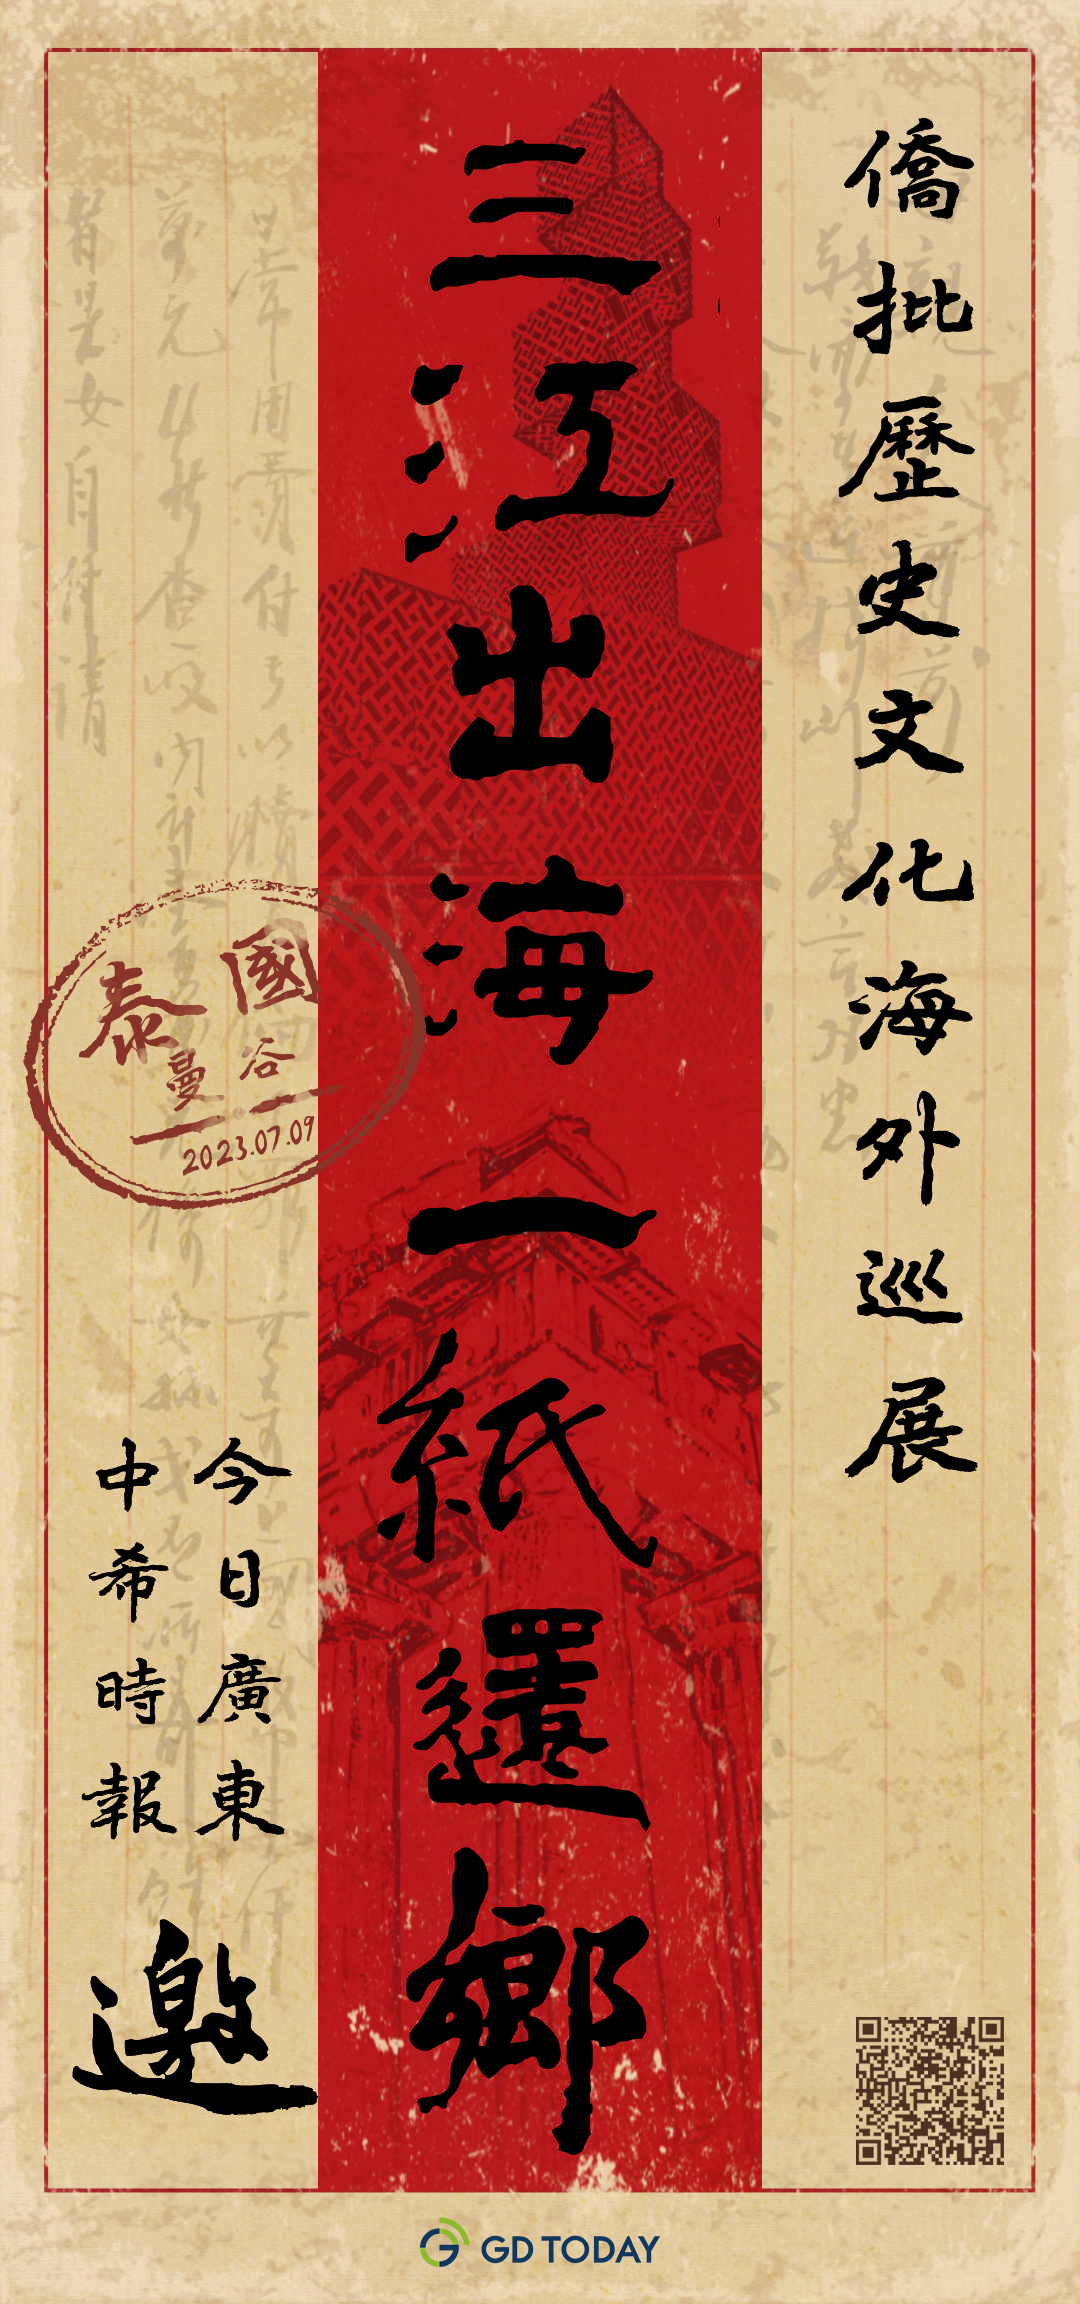 僑批歷史文化海外巡展
三江出海一紙還鄉
泰國
曼谷
2023.07.09
今日廣東
中希時報
邀
GD TODAY